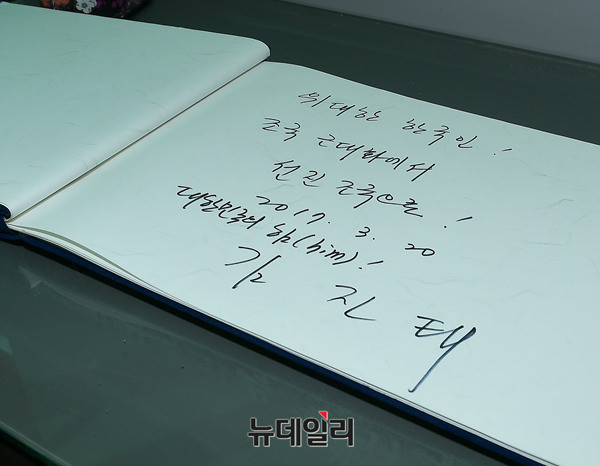 위대한 한국인!
조국 근대화에서
선진 조국으로!
2017. 3. 20
대한민국의 힘(him)!
김 진 태
뉴데일리